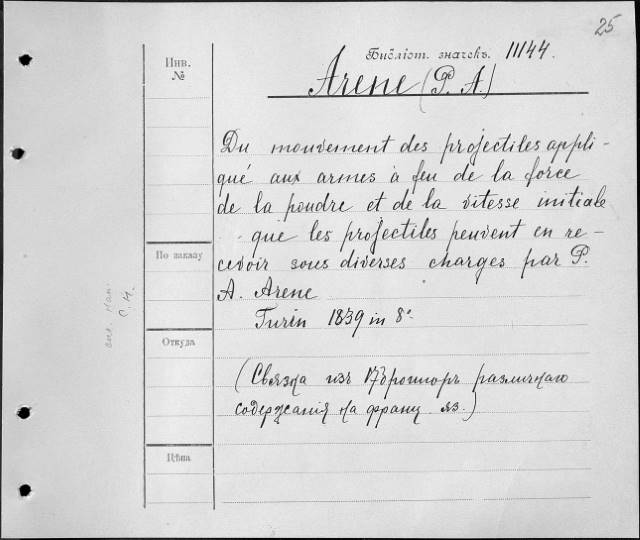 25
Библіот. значекъ. 11144.
Инв.
№
Arene (P. A.)
Du mouvement des projectiles appli-
qué aux armes à feu de la force
de la poudre et de la vitesse initiale
que les projectiles peuvent en re-
cevoir sous diverses charges par P.
A. Arene
Turin 1839 in 8°.
По заказу
Откуда
(Связка изъ 17 брошюръ различнаго
содержанія на франц. яз.)
Цѣна